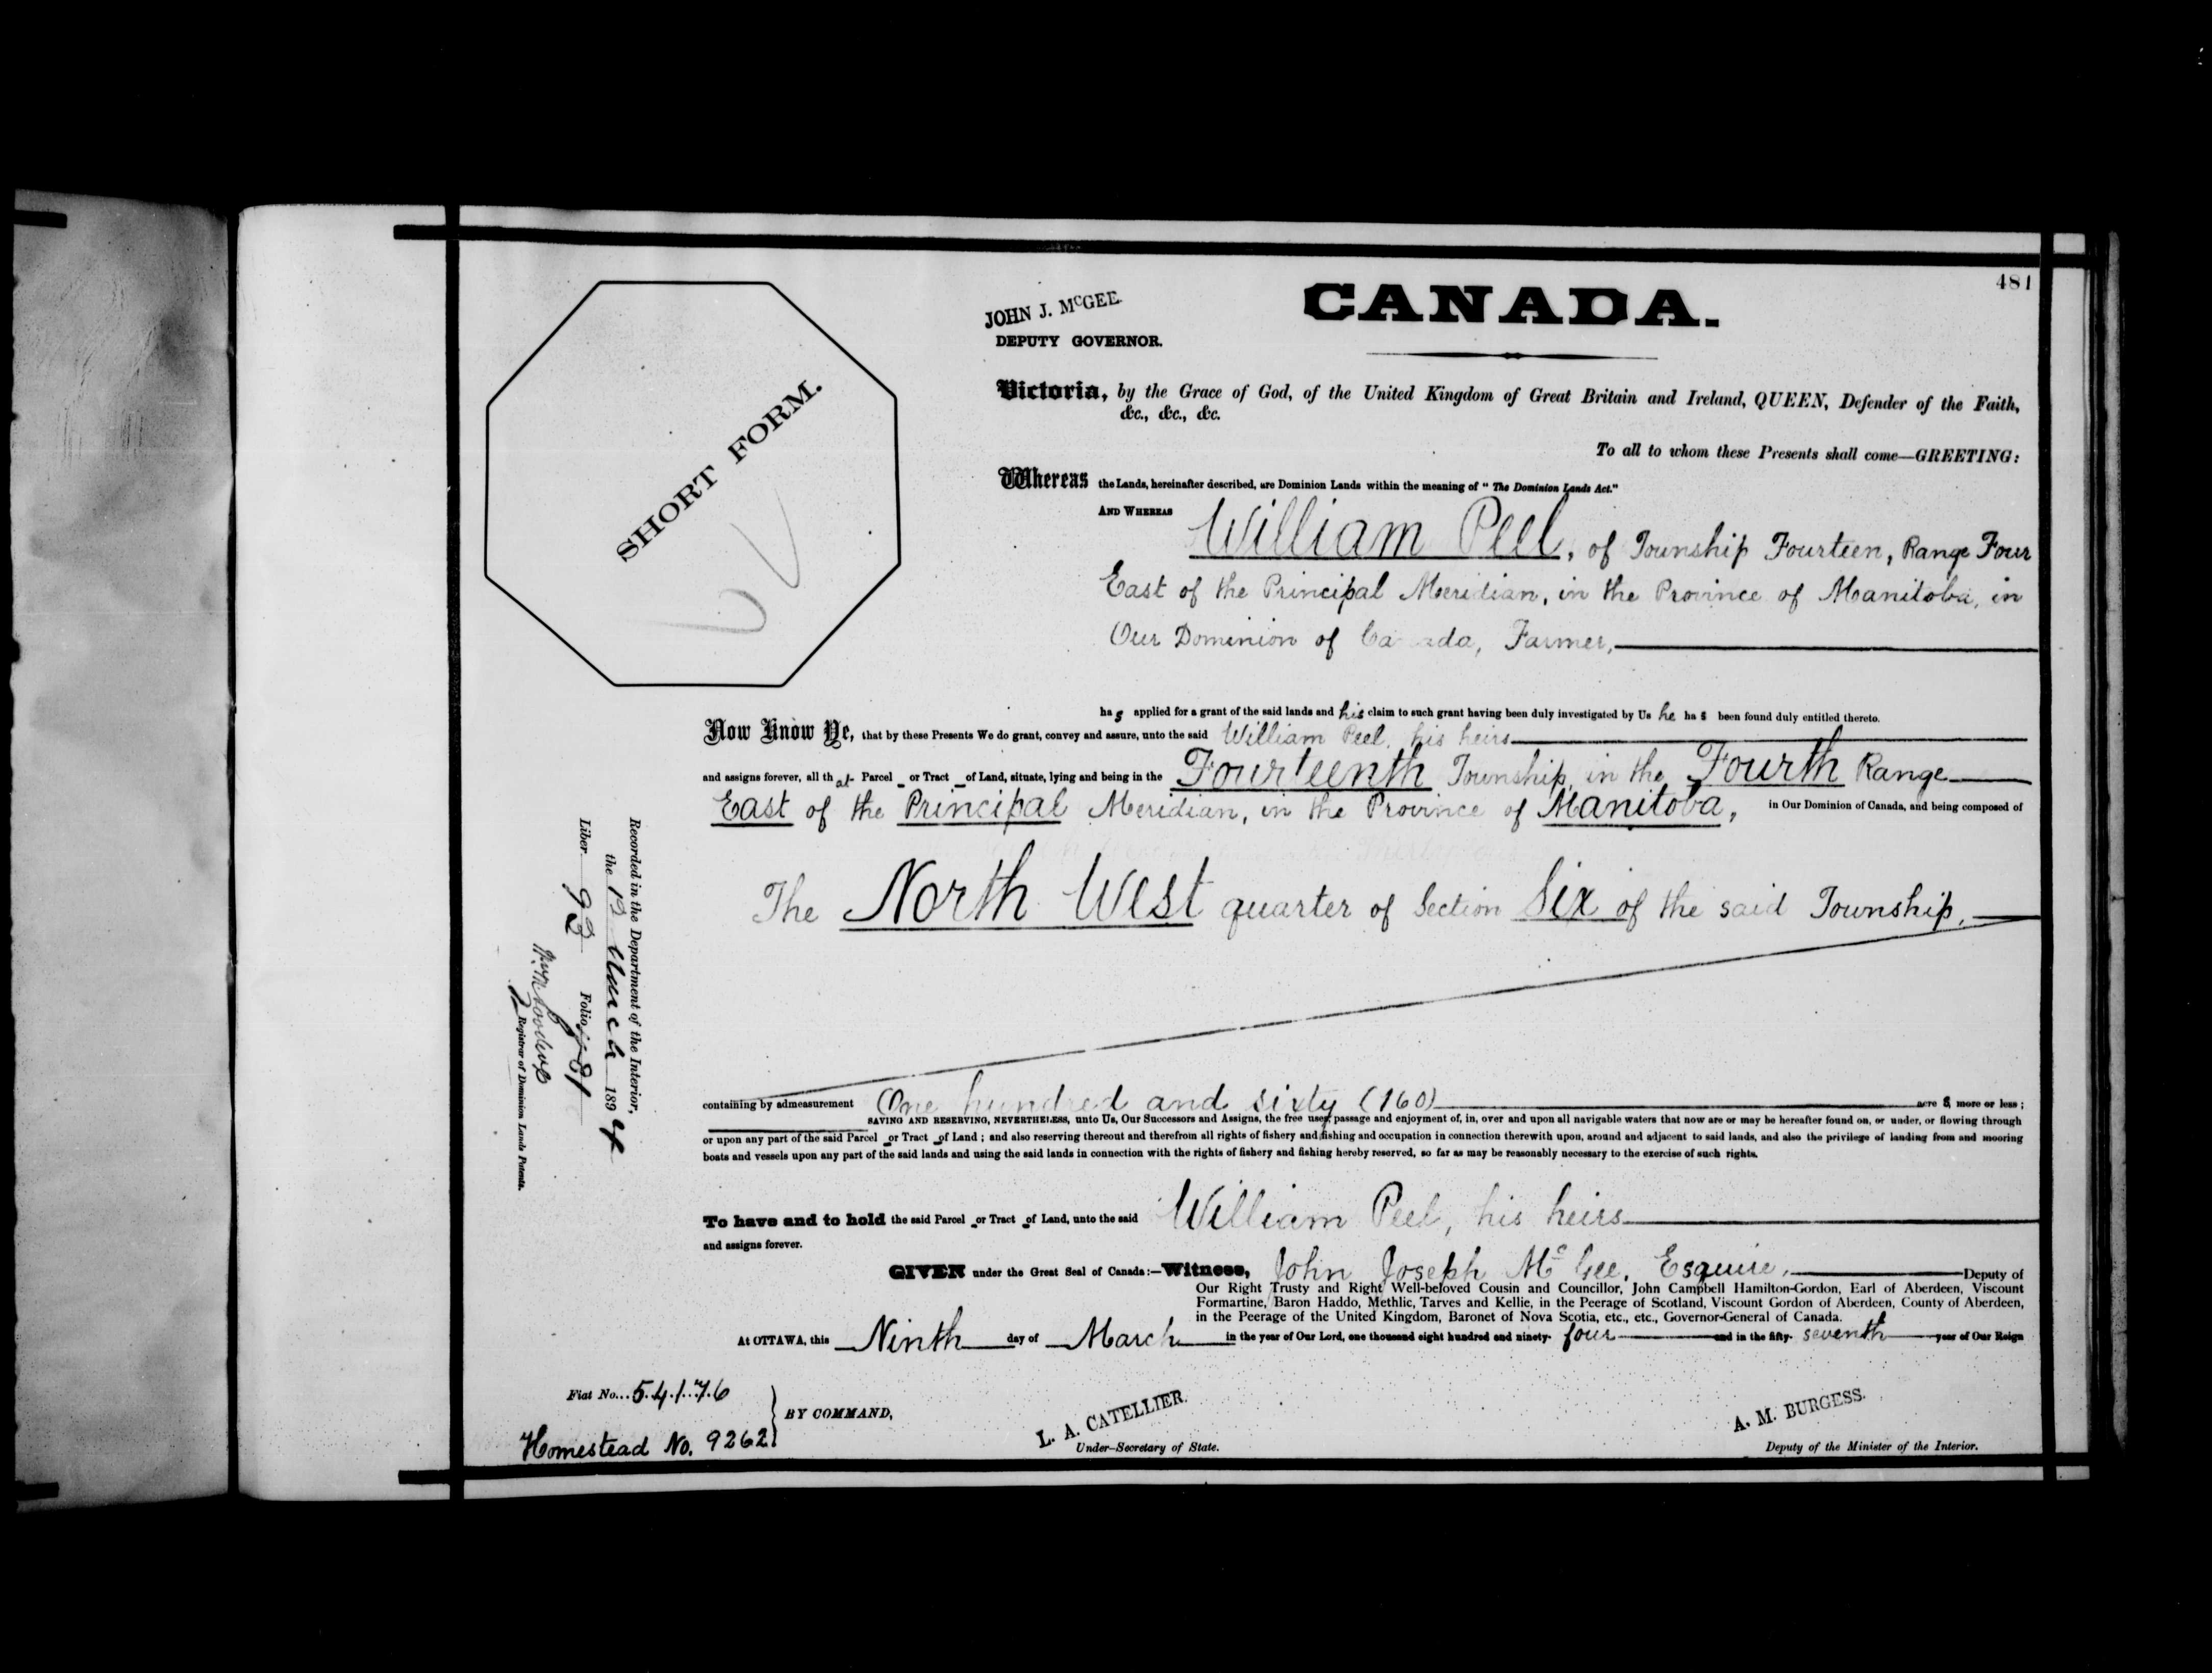 481
JOHN J. McGEE.
DEPUTY GOVERNOR.
CANADA.
SHORT FORM.
Victoria, by the Grace of God, of the United Kingdom of Great Britain and Ireland, QUEEN, Defender of the Faith,
&c., &c., &c.
To all to whom these Presents shall come—GREETING:
Whereas the Lands, hereinafter described, are Dominion Lands within the meaning of "The Dominion Lands Act."
AND WHEREAS William Peel, of Township Fourteen, Range Four
East of the Principal Meridian, in the Province of Manitoba, in
Our Dominion of Canada, Farmer,
has applied for a grant of the said lands and his claim to such grant having been duly investigated by Us he has been found duly entitled thereto.
Now Know Ye, that by these Presents We do grant, convey and assure, unto the said William Peel, his heirs
and assigns forever, all that Parcel or Tract of Land, situate, lying and being in the Fourteenth Township, in the Fourth Range
East of the Principal Meridian, in the Province of Manitoba, in Our Dominion of Canada, and being composed of
The North West quarter of Section Six of the said Township,
containing by admeasurement One hundred and sixty (160) acres, more or less;
SAVING AND RESERVING, NEVERTHELESS, unto Us, Our Successors and Assigns, the free uses, passage and enjoyment of, in, over and upon all navigable waters that now are or may be hereafter found on, or under, or flowing through
or upon any part of the said Parcel or Tract of Land; and also reserving thereout and therefrom all rights of fishery and fishing and occupation in connection therewith upon, around and adjacent to said lands, and also the privilege of landing from and mooring
boats and vessels upon any part of the said lands and using the said lands in connection with the rights of fishery and fishing hereby reserved, so far as may be reasonably necessary to the exercise of such rights.
To have and to hold the said Parcel or Tract of Land, unto the said William Peel, his heirs
and assigns forever.
GIVEN under the Great Seal of Canada:—Witness, John Joseph McGee, Esquire, Deputy of
Our Right Trusty and Right Well-beloved Cousin and Councillor, John Campbell Hamilton-Gordon, Earl of Aberdeen, Viscount
Formartine, Baron Haddo, Methlic, Tarves and Kellie, in the Peerage of Scotland, Viscount Gordon of Aberdeen, County of Aberdeen,
in the Peerage of the United Kingdom, Baronet of Nova Scotia, etc., etc., Governor-General of Canada.
At OTTAWA, this Ninth day of March in the year of Our Lord, one thousand eight hundred and ninety-four and in the fifty-seventh year of Our Reign
Fiat No... 54176
Homestead No. 9262
BY COMMAND,
L. A. CATELLIER.
Under-Secretary of State.
A. M. BURGESS.
Deputy of the Minister of the Interior.
Recorded in the Department of the Interior,
the 13 March 1894
Liber 93 Folio 481
Registrar of Dominion Lands Patents.